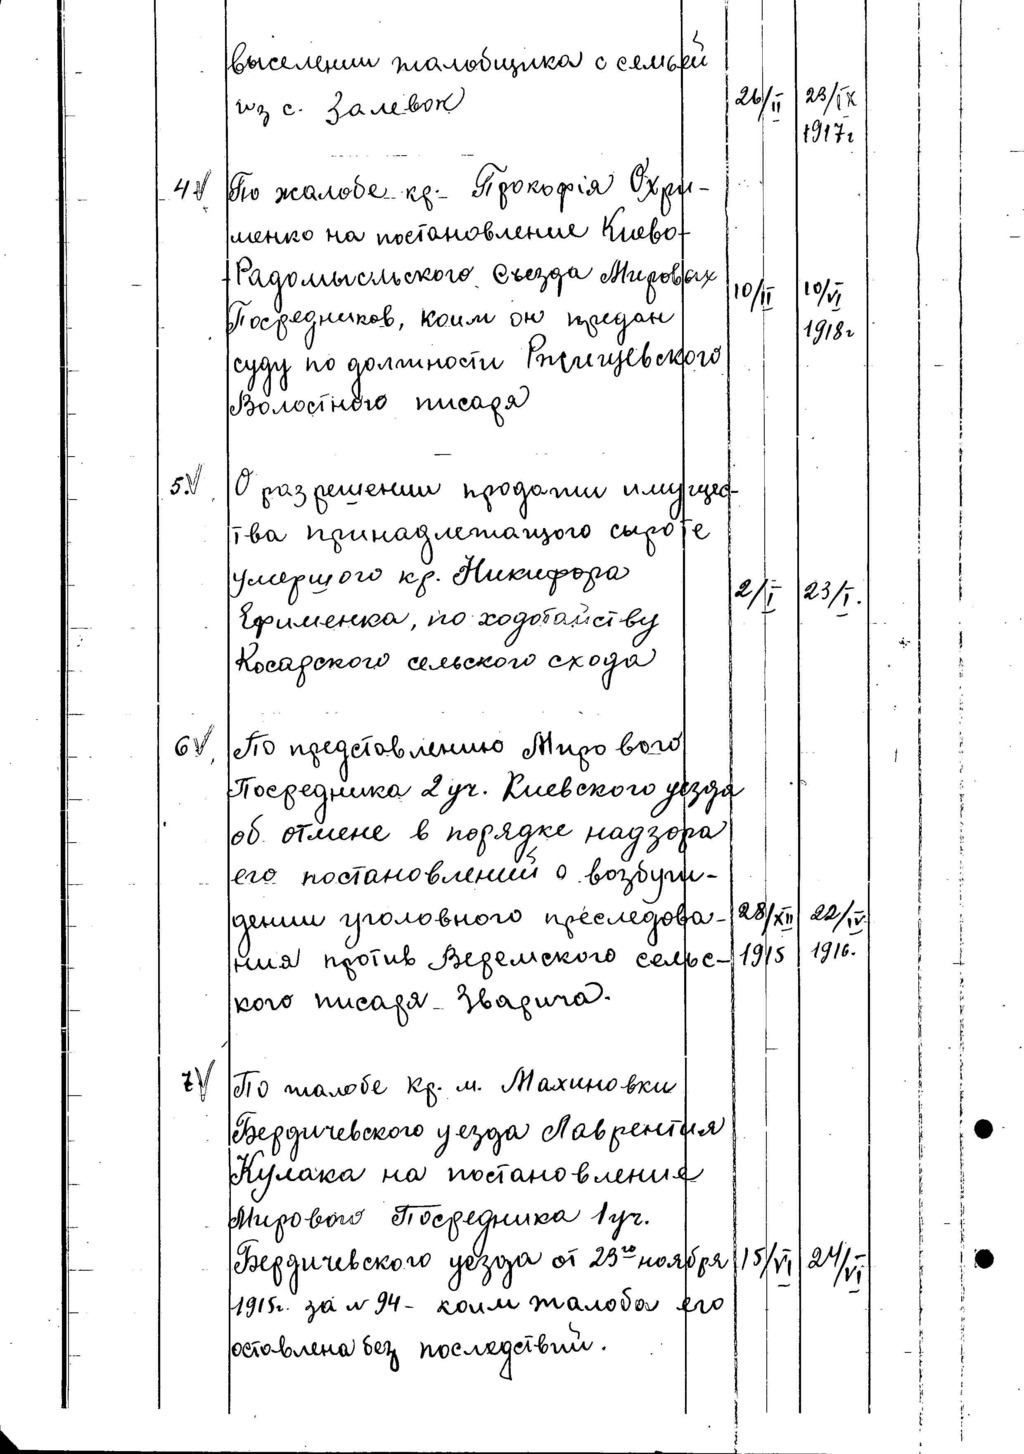 выселении жалобщика с семьей
из с. Залевок
26/II 23/IX
1917г
4. По жалобе кр. Прокофiя Охри-
менко на постановление Киево-
Радомысльского Съезда Мировых
10/II 10/VI
Посредников, коим он предан
1918г
суду по должности Ржищевского
Волостного писаря
5. О разрешении продажи имущес-
тва принадлежащого сыроте
умершого кр. Никифора
2/I 23/I.
Ефименка, по ходотайству
Косарского сельского схода
6. По представлению Мирового
Посредника 2 уч. Киевского уезда
об отмене в порядке надзора
его постановлений о возбуж-
дении уголовного преследова-
28/XII 22/IV
ния против Веремского сельс-
1915 1916.
кого писаря Зварича.
7 По жалобе кр. м. Махиновки
Бердичевского уезда Лаврентия
Кулака на постановления
Мирового Посредника 1 уч.
Бердичевского уезда от 23го ноября
15/VI 24/VI
1915г. за № 94 - коим жалоба его
оставлена без последствий.